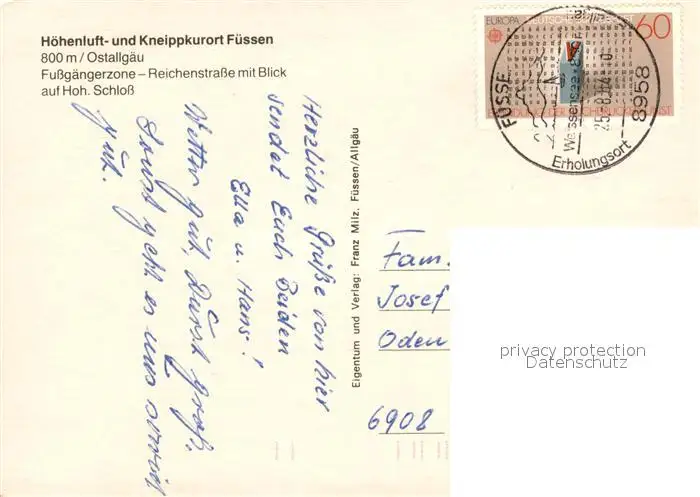 Höhenluft- und Kneippkurort Füssen
800 m / Ostallgäu
Fußgängerzone – Reichenstraße mit Blick
auf Hoh. Schloß
Herzliche Grüße von hier
sendet Euch Beiden
Ella u. Hans!
Wetter gut, Durst groß.
Sonst geht es uns soweit
gut.
Eigentum und Verlag: Franz Milz, Füssen/Allgäu
EUROPA DEUTSCHE BUNDESPOST
60
8958
Weissensee
Erholungsort
Fam.
Josef
Oden
6908
privacy protection
Datenschutz